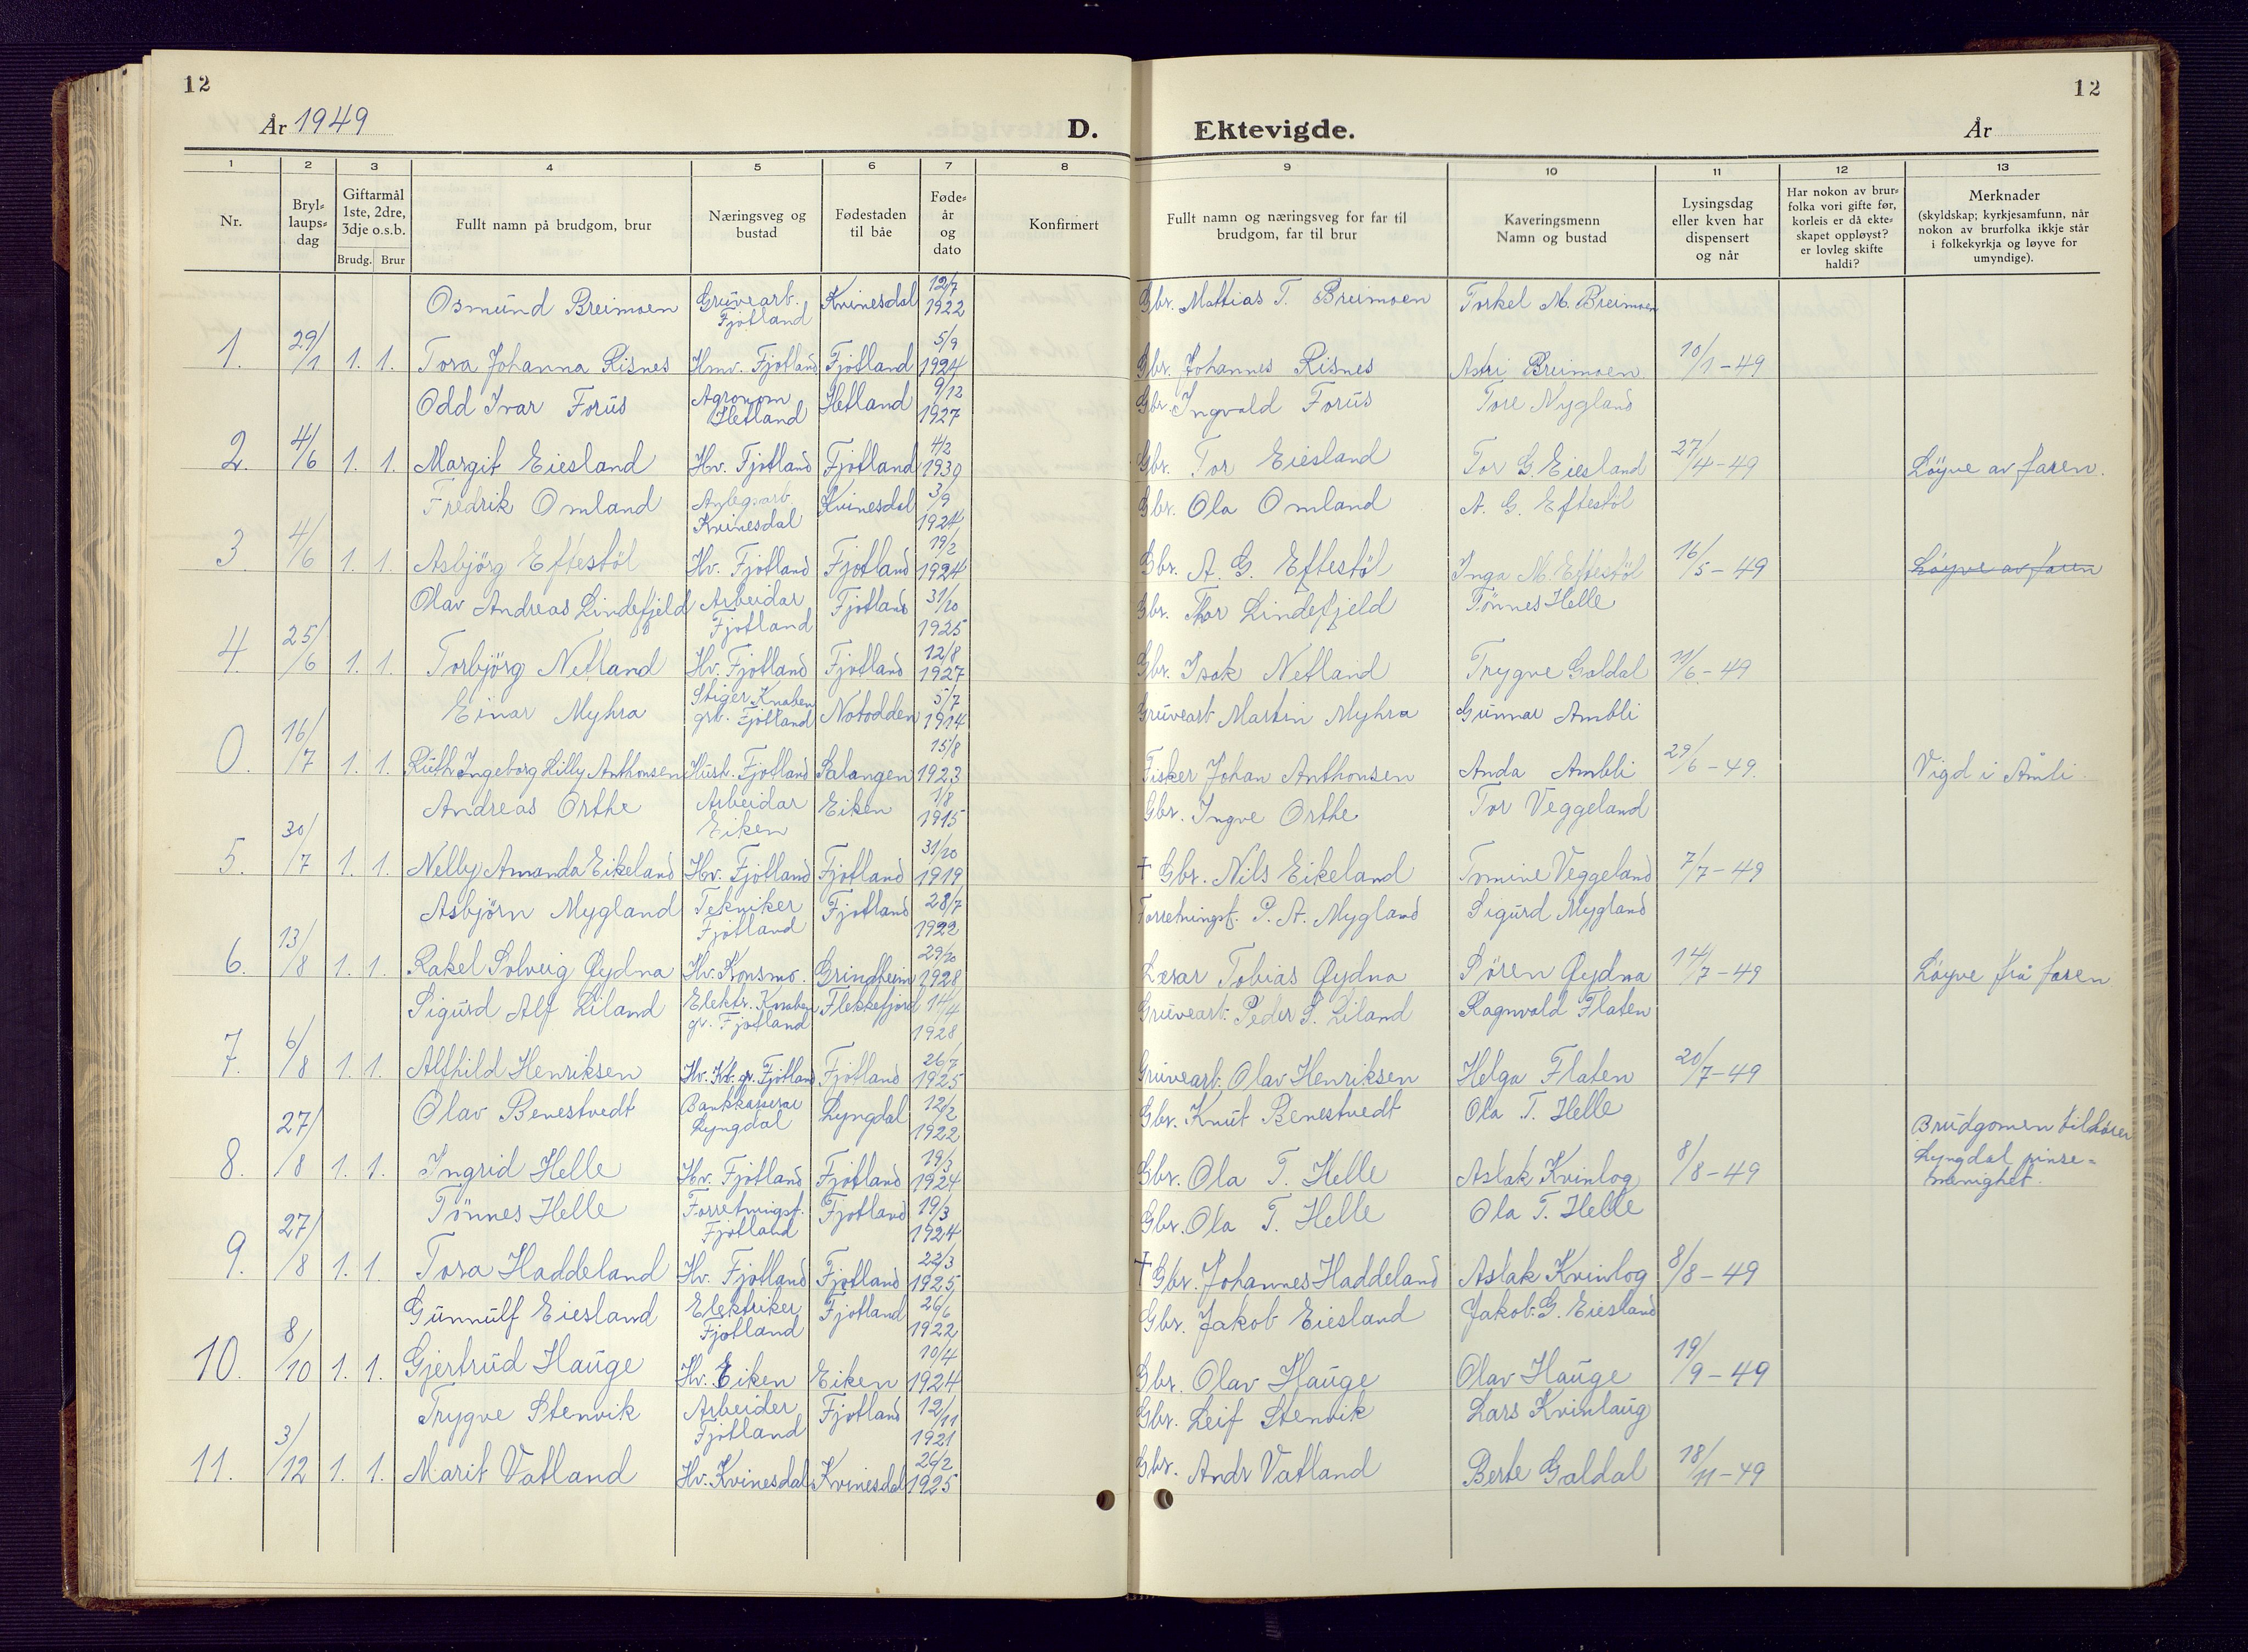 12
12
År 1949
D. Ektevigde.
År
1 2 3 4 5 6 7 8 9 10 11 12 13
Nr.
Bryl-laups-dag
Giftarmål 1ste, 2dre, 3dje o.s.b.
Brudg. Brur
Fullt namn på brudgom, brur
Næringsveg og bustad
Fødestaden til båe
Føde-år og dato
Konfirmert
Fullt namn og næringsveg for far til brudgom, far til brur
Kaveringsmenn Namn og bustad
Lysingsdag eller kven har dispensert og når
Har nokon av brur-folka vori gifte før, korleis er då ekte-skapet oppløyst? er lovleg skifte haldi?
Merknader (skyldskap; kyrkjesamfunn, når nokon av brurfolka ikkje står i folkekyrkja og løyve for umyndige).
Osmund Breimoen Gruvearb. Fjotland Kvinesdal 12/7 1922 Gbr. Mattias T. Breimoen Torkel M. Breimoen
1. 29/1 1. 1. Tora Johanna Risnes Hmv. Fjotland Fjotland 5/9 1924 Gbr. Johannes Risnes Astri Breimoen 10/1-49
Odd Ivar Forus Agronom Hetland Hetland 9/12 1927 Gbr. Ingvald Forus Tore Nygland
2. 4/6 1. 1. Margit Eiesland Hv. Fjotland Fjotland 4/2 1930 Gbr. Tor Eiesland Tor G. Eiesland 27/4-49 Löyve av faren.
Fredrik Omland Anlegsarb. Kvinesdal Kvinesdal 3/9 1924 Gbr. Ola Omland A. G. Eftestöl
3. 4/6 1. 1. Asbjörg Eftestöl Hv. Fjotland Fjotland 19/2 1924 Gbr. A. G. Eftestöl Inga M. Eftestöl 16/5-49 Löyve av faren
Olav Andreas Lindefjeld Arbeidar Fjotland Fjotland 31/10 1925 Gbr. Thor Lindefjeld Tönnes Helle
4. 25/6 1. 1. Torbjörg Netland Hv. Fjotland Fjotland 12/8 1927 Gbr. Isak Netland Trygve Galdal 11/6-49
Einar Myhra Stiger Knaben gr. Fjotland Notodden 5/7 1914 Gruvearb. Martin Myhra Gunnar Ambli
0. 16/7 1. 1. Ruth Ingeborg Lilly Anthonsen Hust. Fjotland Salangen 15/8 1923 Fisker Johan Anthonsen Anda Ambli 29/6-49. Vigd i Åmli.
Andreas Orthe Arbeidar Eiken Eiken 1/8 1915 Gbr. Ingve Orthe Tor Veggeland
5. 30/7 1. 1. Nelly Amanda Eikeland Hv. Fjotland Fjotland 31/10 1919 † Gbr. Nils Eikeland Tomine Veggeland 7/7-49
Asbjörn Mygland Tekniker Fjotland Fjotland 28/7 1922 Forretningsf. P. A. Mygland Sigurd Mygland
6. 13/8 1. 1. Rakel Solveig Øydna Hv. Konsmo. Grindheim 29/10 1928 Lærar Tobias Øydna Sören Øydna 14/7-49 Löyve frå faren
Sigurd Alf Liland Elektr. Knaben gr. Fjotland Flekkefjord 14/4 1928 Gruvearb. Peder S. Liland Ragnvald Flaten
7. 6/8 1. 1. Alfhild Henriksen Hv. Kb. gr. Fjotland Fjotland 26/7 1925 Gruvearb. Olav Henriksen Helga Flaten 20/7-49
Olav Benestvedt Bankkasserar Lyngdal Lyngdal 12/2 1922 Gbr. Knut Benestvedt Ola T. Helle
8. 27/8 1. 1. Ingrid Helle Hv. Fjotland Fjotland 19/3 1924 Gbr. Ola T. Helle Aslak Kvinlog 8/8-49 Brudgomen tilhører Lyngdal pinse-menighet.
Tönnes Helle Forretningsf. Fjotland Fjotland 19/3 1924 Gbr. Ola T. Helle Ola T. Helle
9. 27/8 1. 1. Tora Haddeland Hv. Fjotland Fjotland 22/3 1925 † Gbr. Johannes Haddeland Aslak Kvinlog 8/8-49
Gunnulf Eiesland Elektriker Fjotland Fjotland 26/6 1922 Gbr. Jakob Eiesland Jakob G. Eiesland
10. 8/10 1. 1. Gjertrud Hauge Hv. Eiken Eiken 10/4 1924 Gbr. Olav Hauge Olav Hauge 19/9-49
Trygve Stenvik Arbeider Fjotland Fjotland 12/11 1921 Gbr. Leif Stenvik Lars Kvinlaug
11. 3/12 1. 1. Marit Vatland Hv. Kvinesdal Kvinesdal 26/2 1925 Gbr. Andr Vatland Berte Galdal 18/11-49